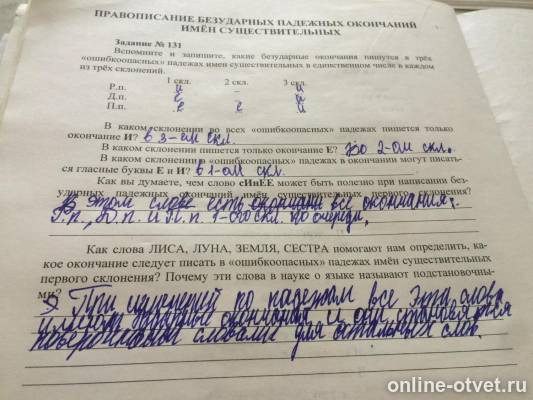 ПРАВОПИСАНИЕ БЕЗУДАРНЫХ ПАДЕЖНЫХ ОКОНЧАНИЙ
ИМЁН СУЩЕСТВИТЕЛЬНЫХ
Задание № 131
Вспомните и запишите, какие безударные окончания пишутся в трёх
«ошибкоопасных» падежах имен существительных в единственном числе в каждом
из трёх склонений.
1 скл. 2 скл. 3 скл.
Р.п. и - и
Д.п. е - и
П.п. е е и
В каком склонении во всех «ошибкоопасных» падежах пишется только
окончание И? в 3-ем скл.
В каком склонении пишется только окончание Е? Во 2-ом скл.
В каком склонении в «ошибкоопасных» падежах в окончании могут писать-
ся гласные буквы Е и И? в 1-ом скл.
Как вы думаете, чем слово сИнЕЕ может быть полезно при написании без-
ударных падежных окончаний имён существительных первого склонения?
В этом слове есть все окончания:
Р.п., Д.п. и П.п. 1-ого скл. по очереди.
Как слова ЛИСА, ЛУНА, ЗЕМЛЯ, СЕСТРА помогают нам определить, ка-
кое окончание следует писать в «ошибкоопасных» падежах имён существительных
первого склонения? Почему эти слова в науке о языке называют подстановочны-
ми?
При по падежам все эти слова
окончания и они становятся
словами для остальных слов.
online-otvet.ru